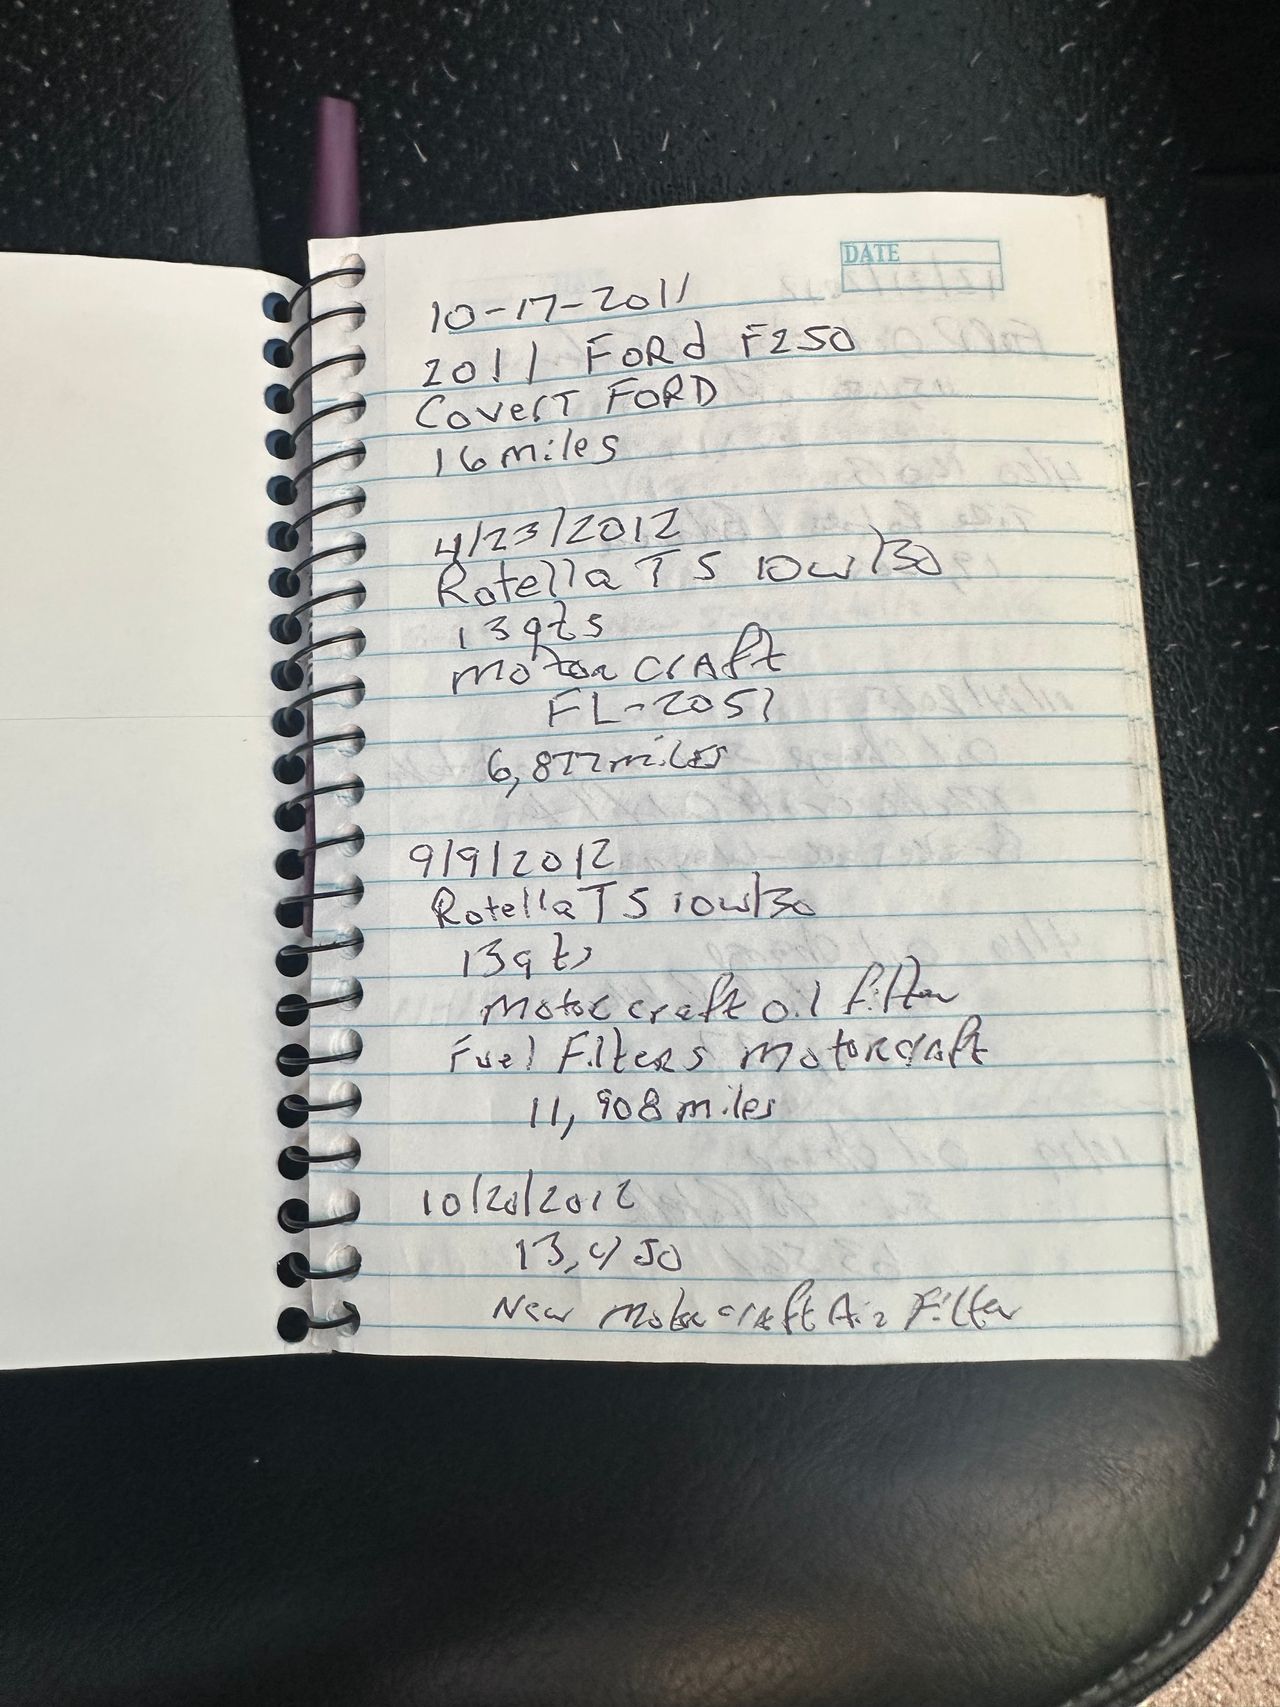 DATE
10-17-2011
2011 FoRd F250
Covert FORD
16 miles
4/23/2012
Rotella T5 10w/30
13qts
MotorCrAft
FL-2051
6,877 miles
9/9/2012
Rotella T5 10w/30
13qts
Motorcraft oil filter
Fuel Filters Motorcraft
11,908 miles
10/20/2012
13,450
New Motorcraft Air Filter